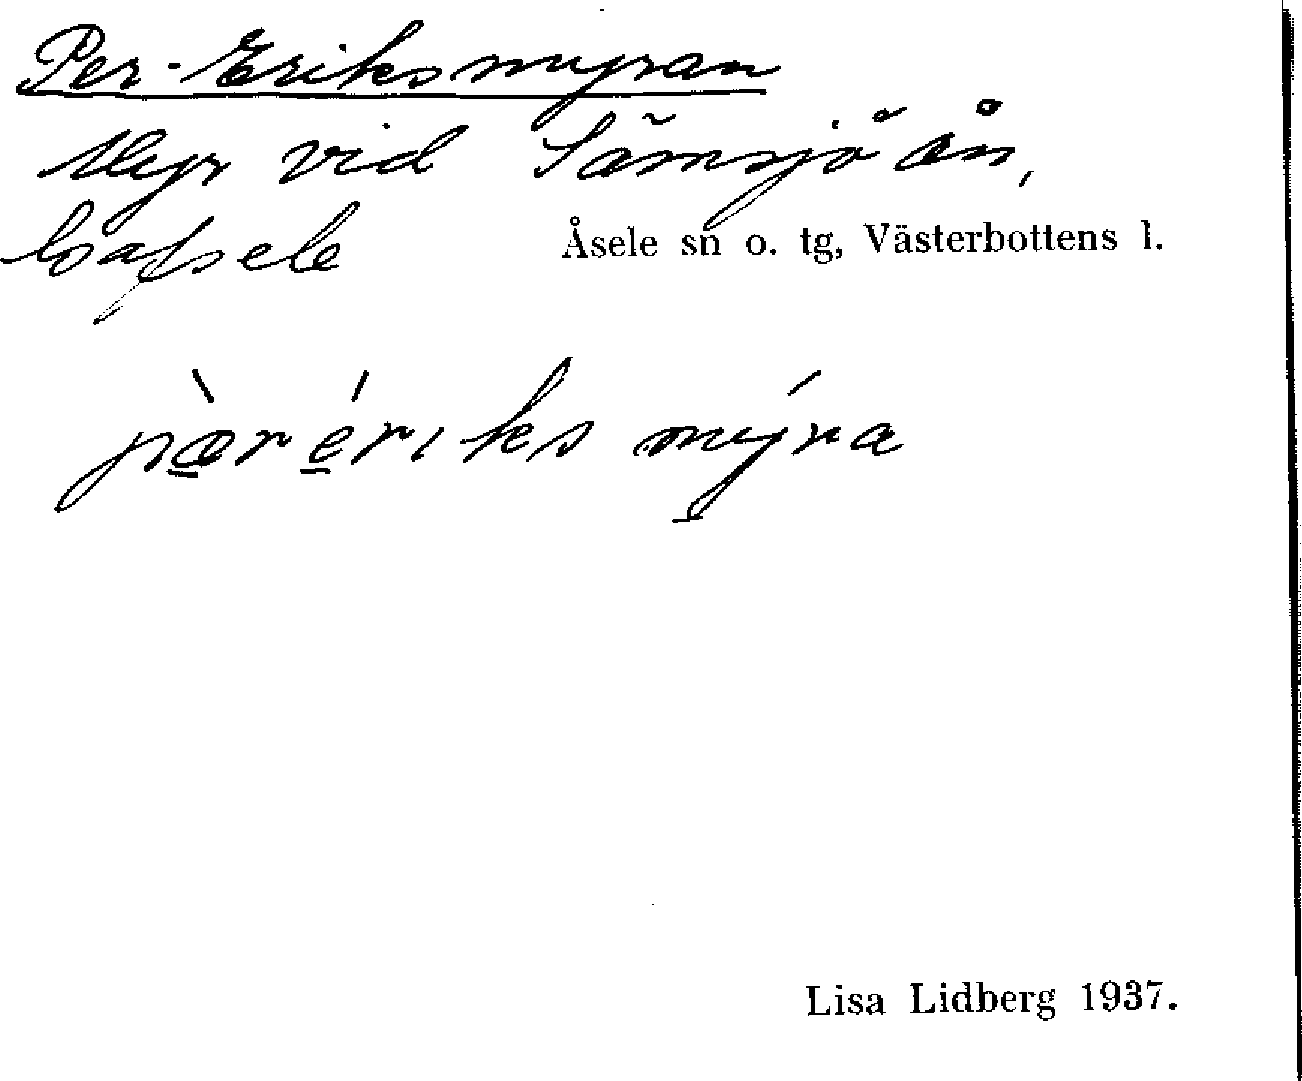 Per-Eriksmyran
Myr vid Sämsjöån,
Gafsele
Åsele sn o. tg, Västerbottens l.
pæ̀r ériks mýra
Lisa Lidberg 1937.